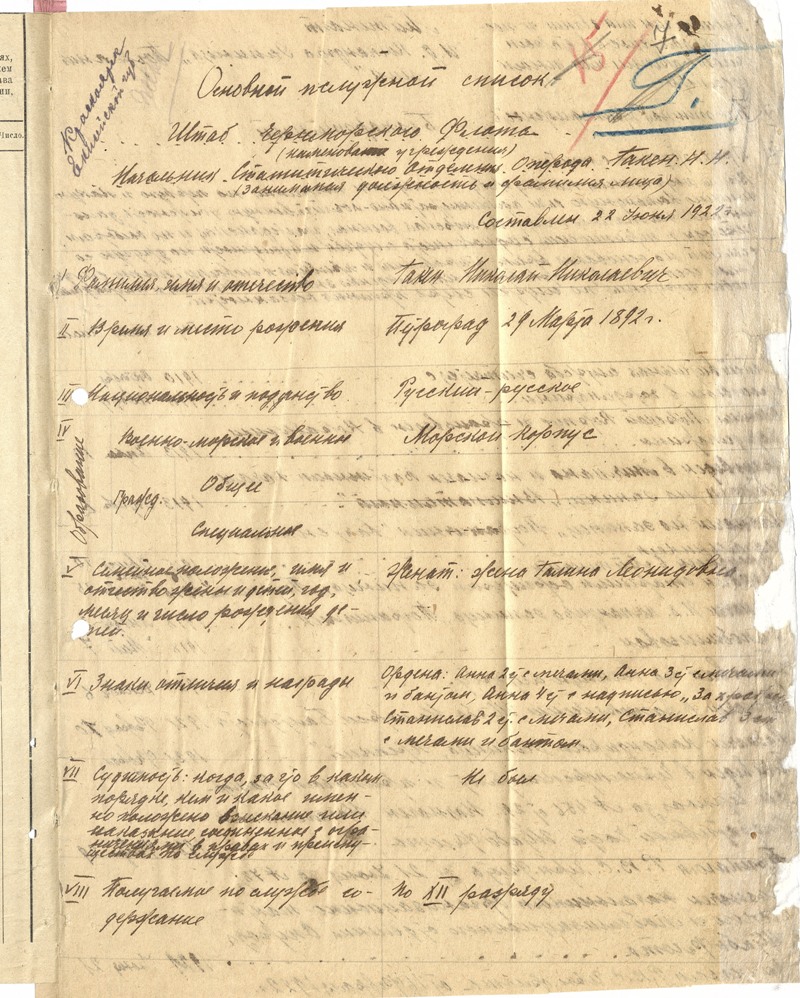 Основной послужной список
Штаб Черноморского Флота
(наименован учреждения)
Начальник Статистического Отделения Оперода Гакен Н. Н.
(Занимаемая должность и фамилия лица)
Составлен 22 Июня 1922 г.
I Фамилия, имя и отечество
Гакен Николай Николаевич
II Время и место рождения
29 Марта 1892 г.
III Национальность и подданство
Русский - русское
IV Образование
Военно-морское и военное
Морской корпус
Гражд.
Общее
Специальное
V Семейное положение, имя и
отчество жены и детей, год,
месяц и число рождения де-
тей.
Женат: жена Галина Леонидовна
VI Знаки отличия и награды
Ордена: Анна 2й с мечами, Анна 3й с мечами
и бантом, Анна 4й с надписью „За
Станислав 2 ст. с мечами, Станислав 3
с мечами и бантом.
VII Судимость: когда, за что в каком
порядке, кем и какое имен-
но положено взыскание или
наказание, соединенное с огра-
ничениями в правах и преиму-
ществах по службе
Не был
VIII Получаемое по службе со-
держание
По XII разряду
ях,
кем
ава
ии,
Число.